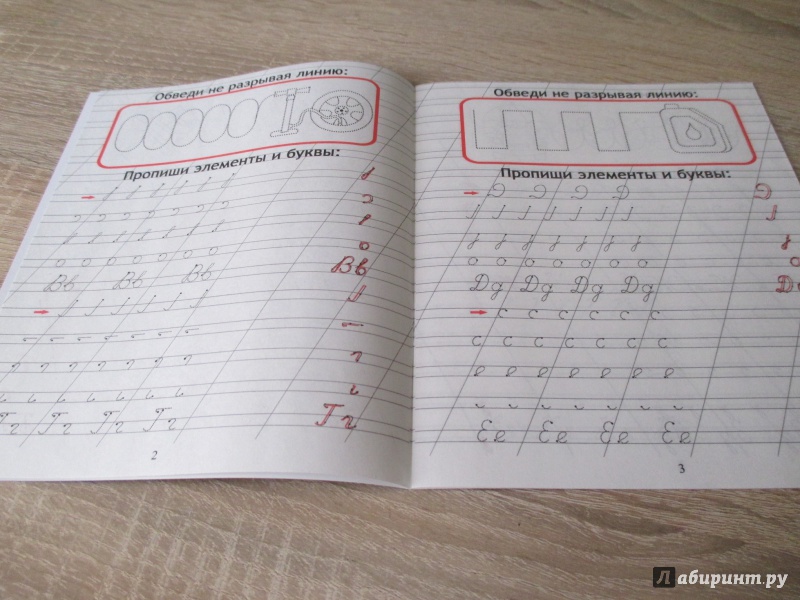 Обведи не разрывая линию:
Пропиши элементы и буквы:
о о о о о о о о
Вв Вв Вв Вв
Гг Гг Гг Гг Гг
2
Обведи не разрывая линию:
Пропиши элементы и буквы:
о о о о о о о о
Дд Дд Дд Дд Дд
с с с с с с
с с с с с с с
е е е е е е е
Ее Ее Ее Ее
3
Лабиринт.ру